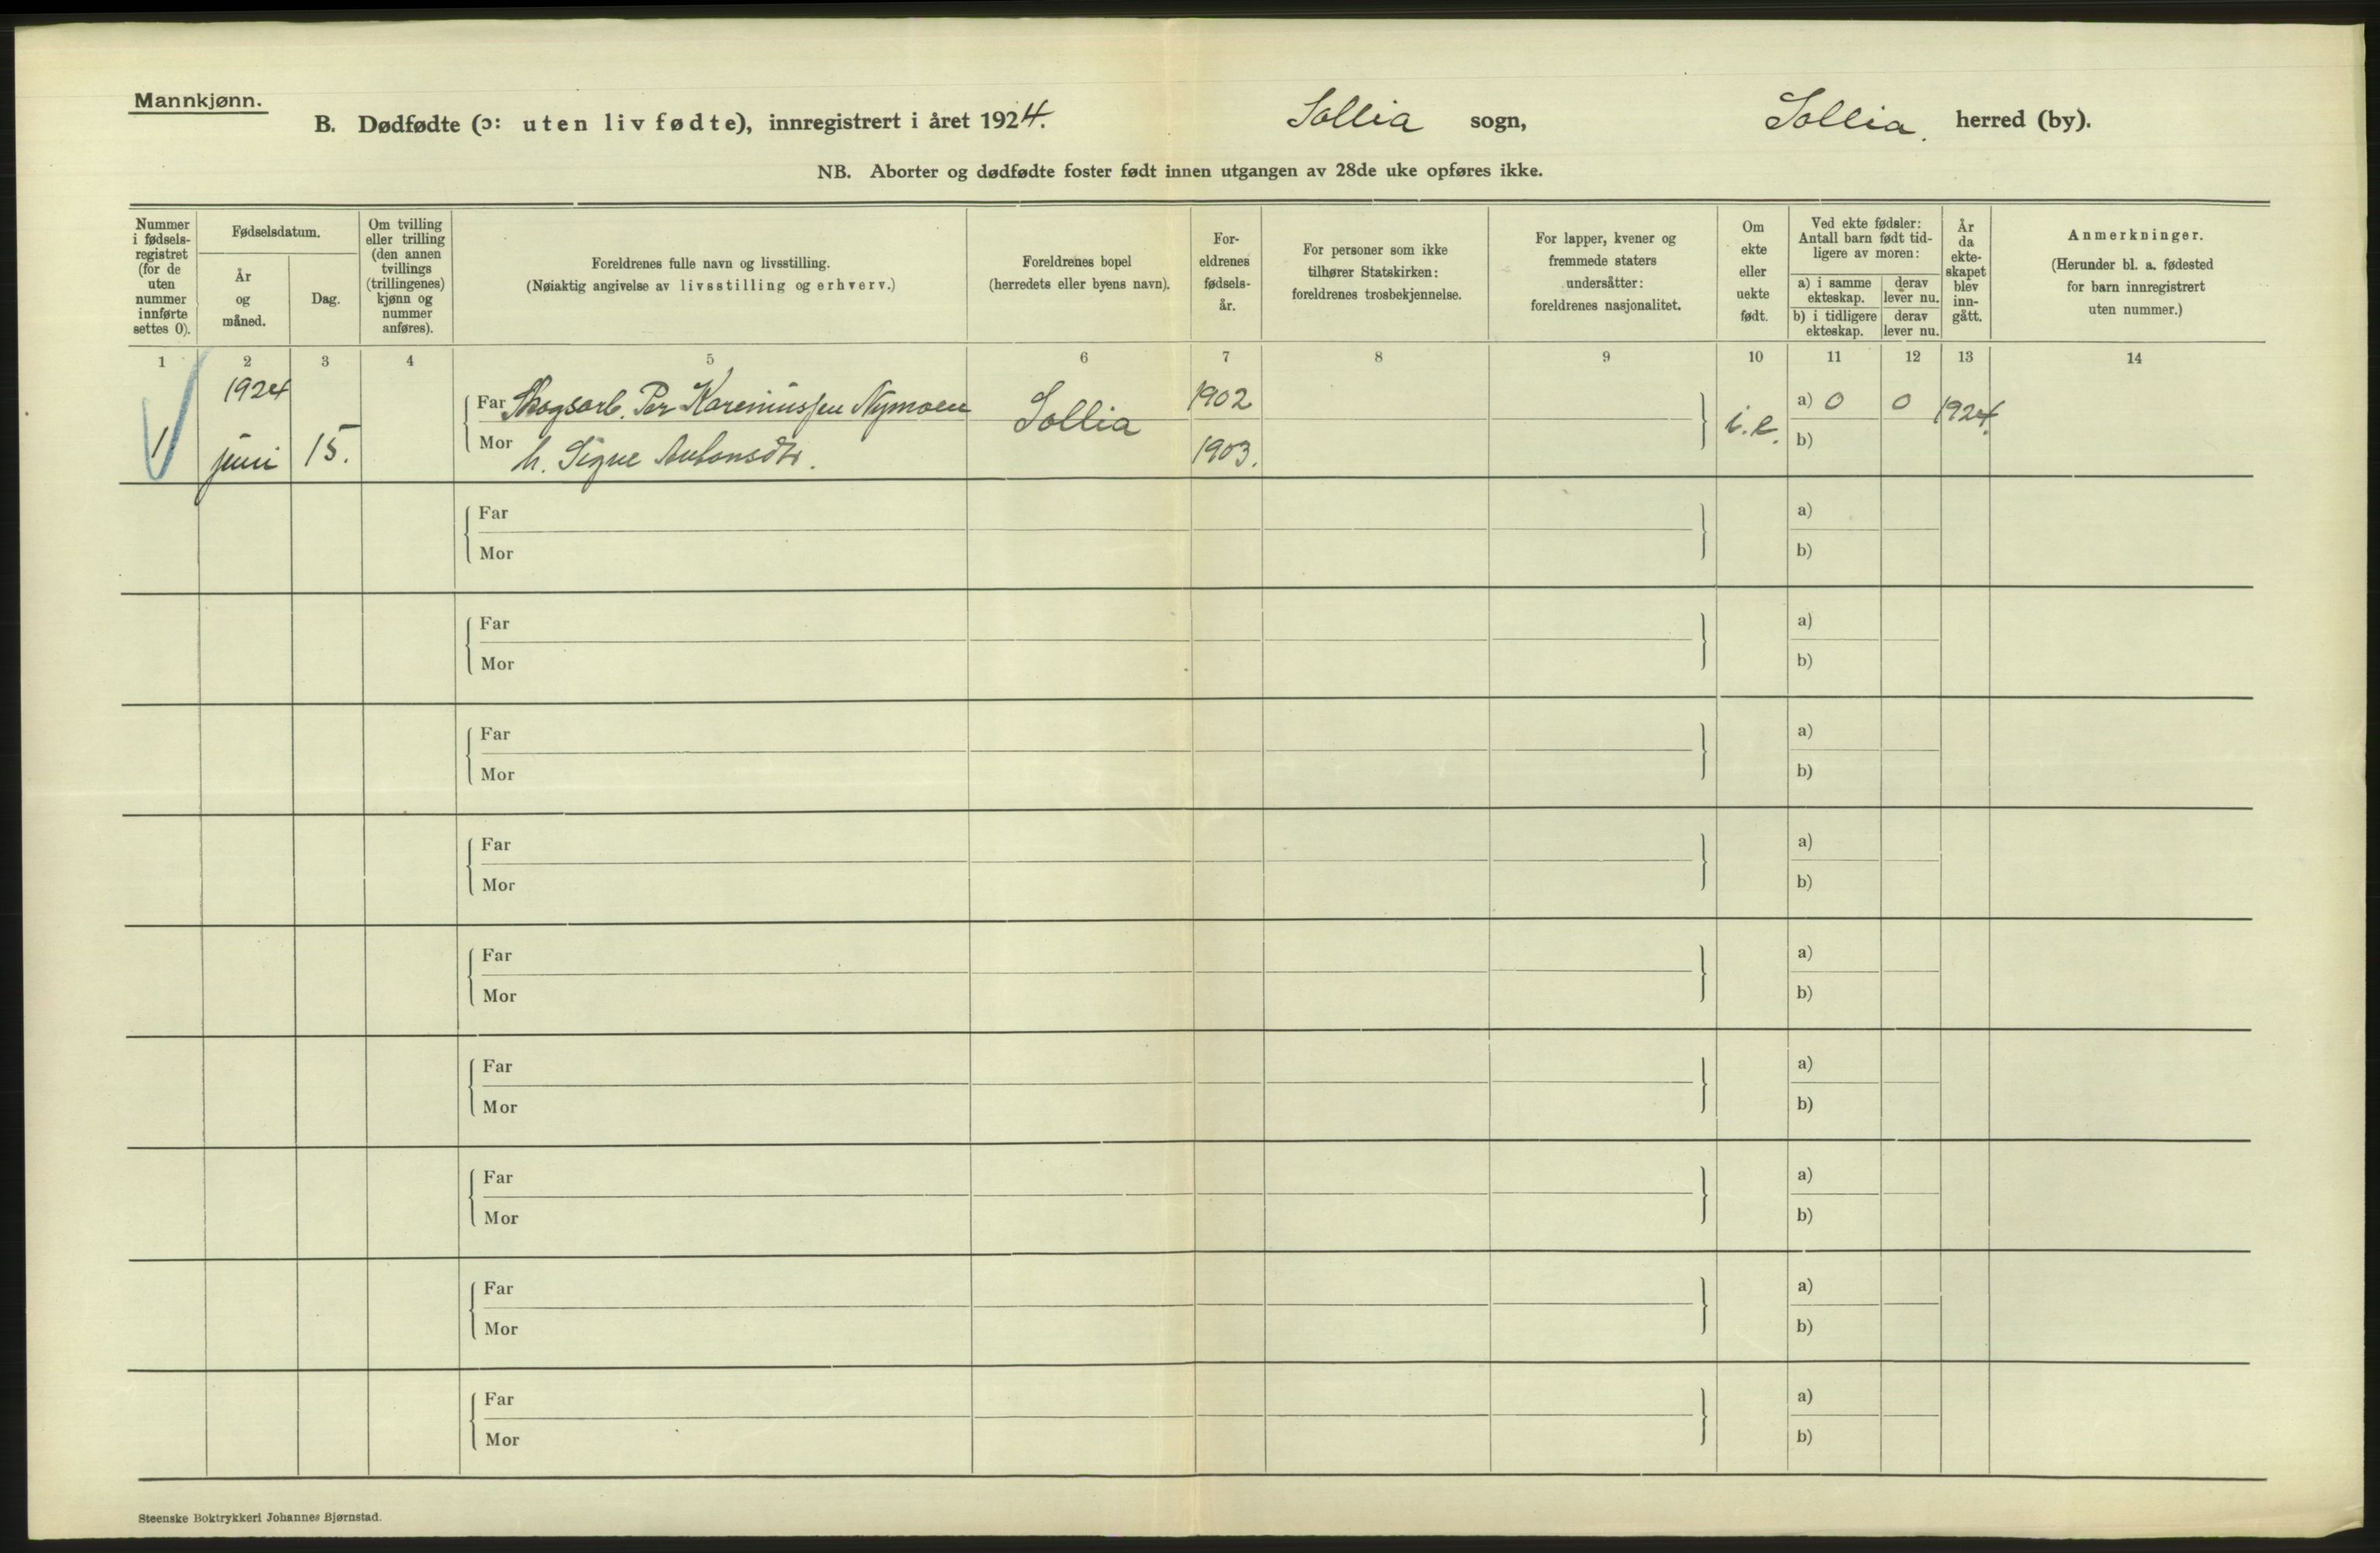 Mannkjønn.
B. Dødfødte (ɔ: uten liv fødte), innregistrert i året 1924. Sollia sogn, Sollia. herred (by).
NB. Aborter og dødfødte foster født innen utgangen av 28de uke opføres ikke.
Nummer
i fødsels-
registret
(for de
uten
nummer
innførte
settes 0).
Fødselsdatum.
År
og
måned.
Dag.
Om tvilling
eller trilling
(den annen
tvillings
(trillingenes)
kjønn og
nummer
anføres).
Foreldrenes fulle navn og livsstilling.
(Nøiaktig angivelse av livsstilling og erhverv.)
Foreldrenes bopel
(herredets eller byens navn).
For-
eldrenes
fødsels-
år.
For personer som ikke
tilhører Statskirken:
foreldrenes trosbekjennelse.
For lapper, kvener og
fremmede staters
undersåtter:
foreldrenes nasjonalitet.
Om
ekte
eller
uekte
født.
Ved ekte fødsler:
Antall barn født tid-
ligere av moren:
a) i samme
ekteskap.
derav
lever nu.
b) i tidligere
ekteskap.
derav
lever nu.
År
da
ekte-
skapet
blev
inn-
gått.
Anmerkninger.
(Herunder bl. a. fødested
for barn innregistrert
uten nummer.)
1 2 3 4 5 6 7 8 9 10 11 12 13 14
1924
Far Skogsarb. Per Kareniussen Nymoen Sollia 1902 i.e. a) 0 0 1924.
1 juni 15. Mor h. Signe Antonsdtr. 1903. b)
Far a)
Mor b)
Far a)
Mor b)
Far a)
Mor b)
Far a)
Mor b)
Far a)
Mor b)
Far a)
Mor b)
Far a)
Mor b)
Far a)
Mor b)
Far a)
Mor b)
Steenske Boktrykkeri Johannes Bjørnstad.